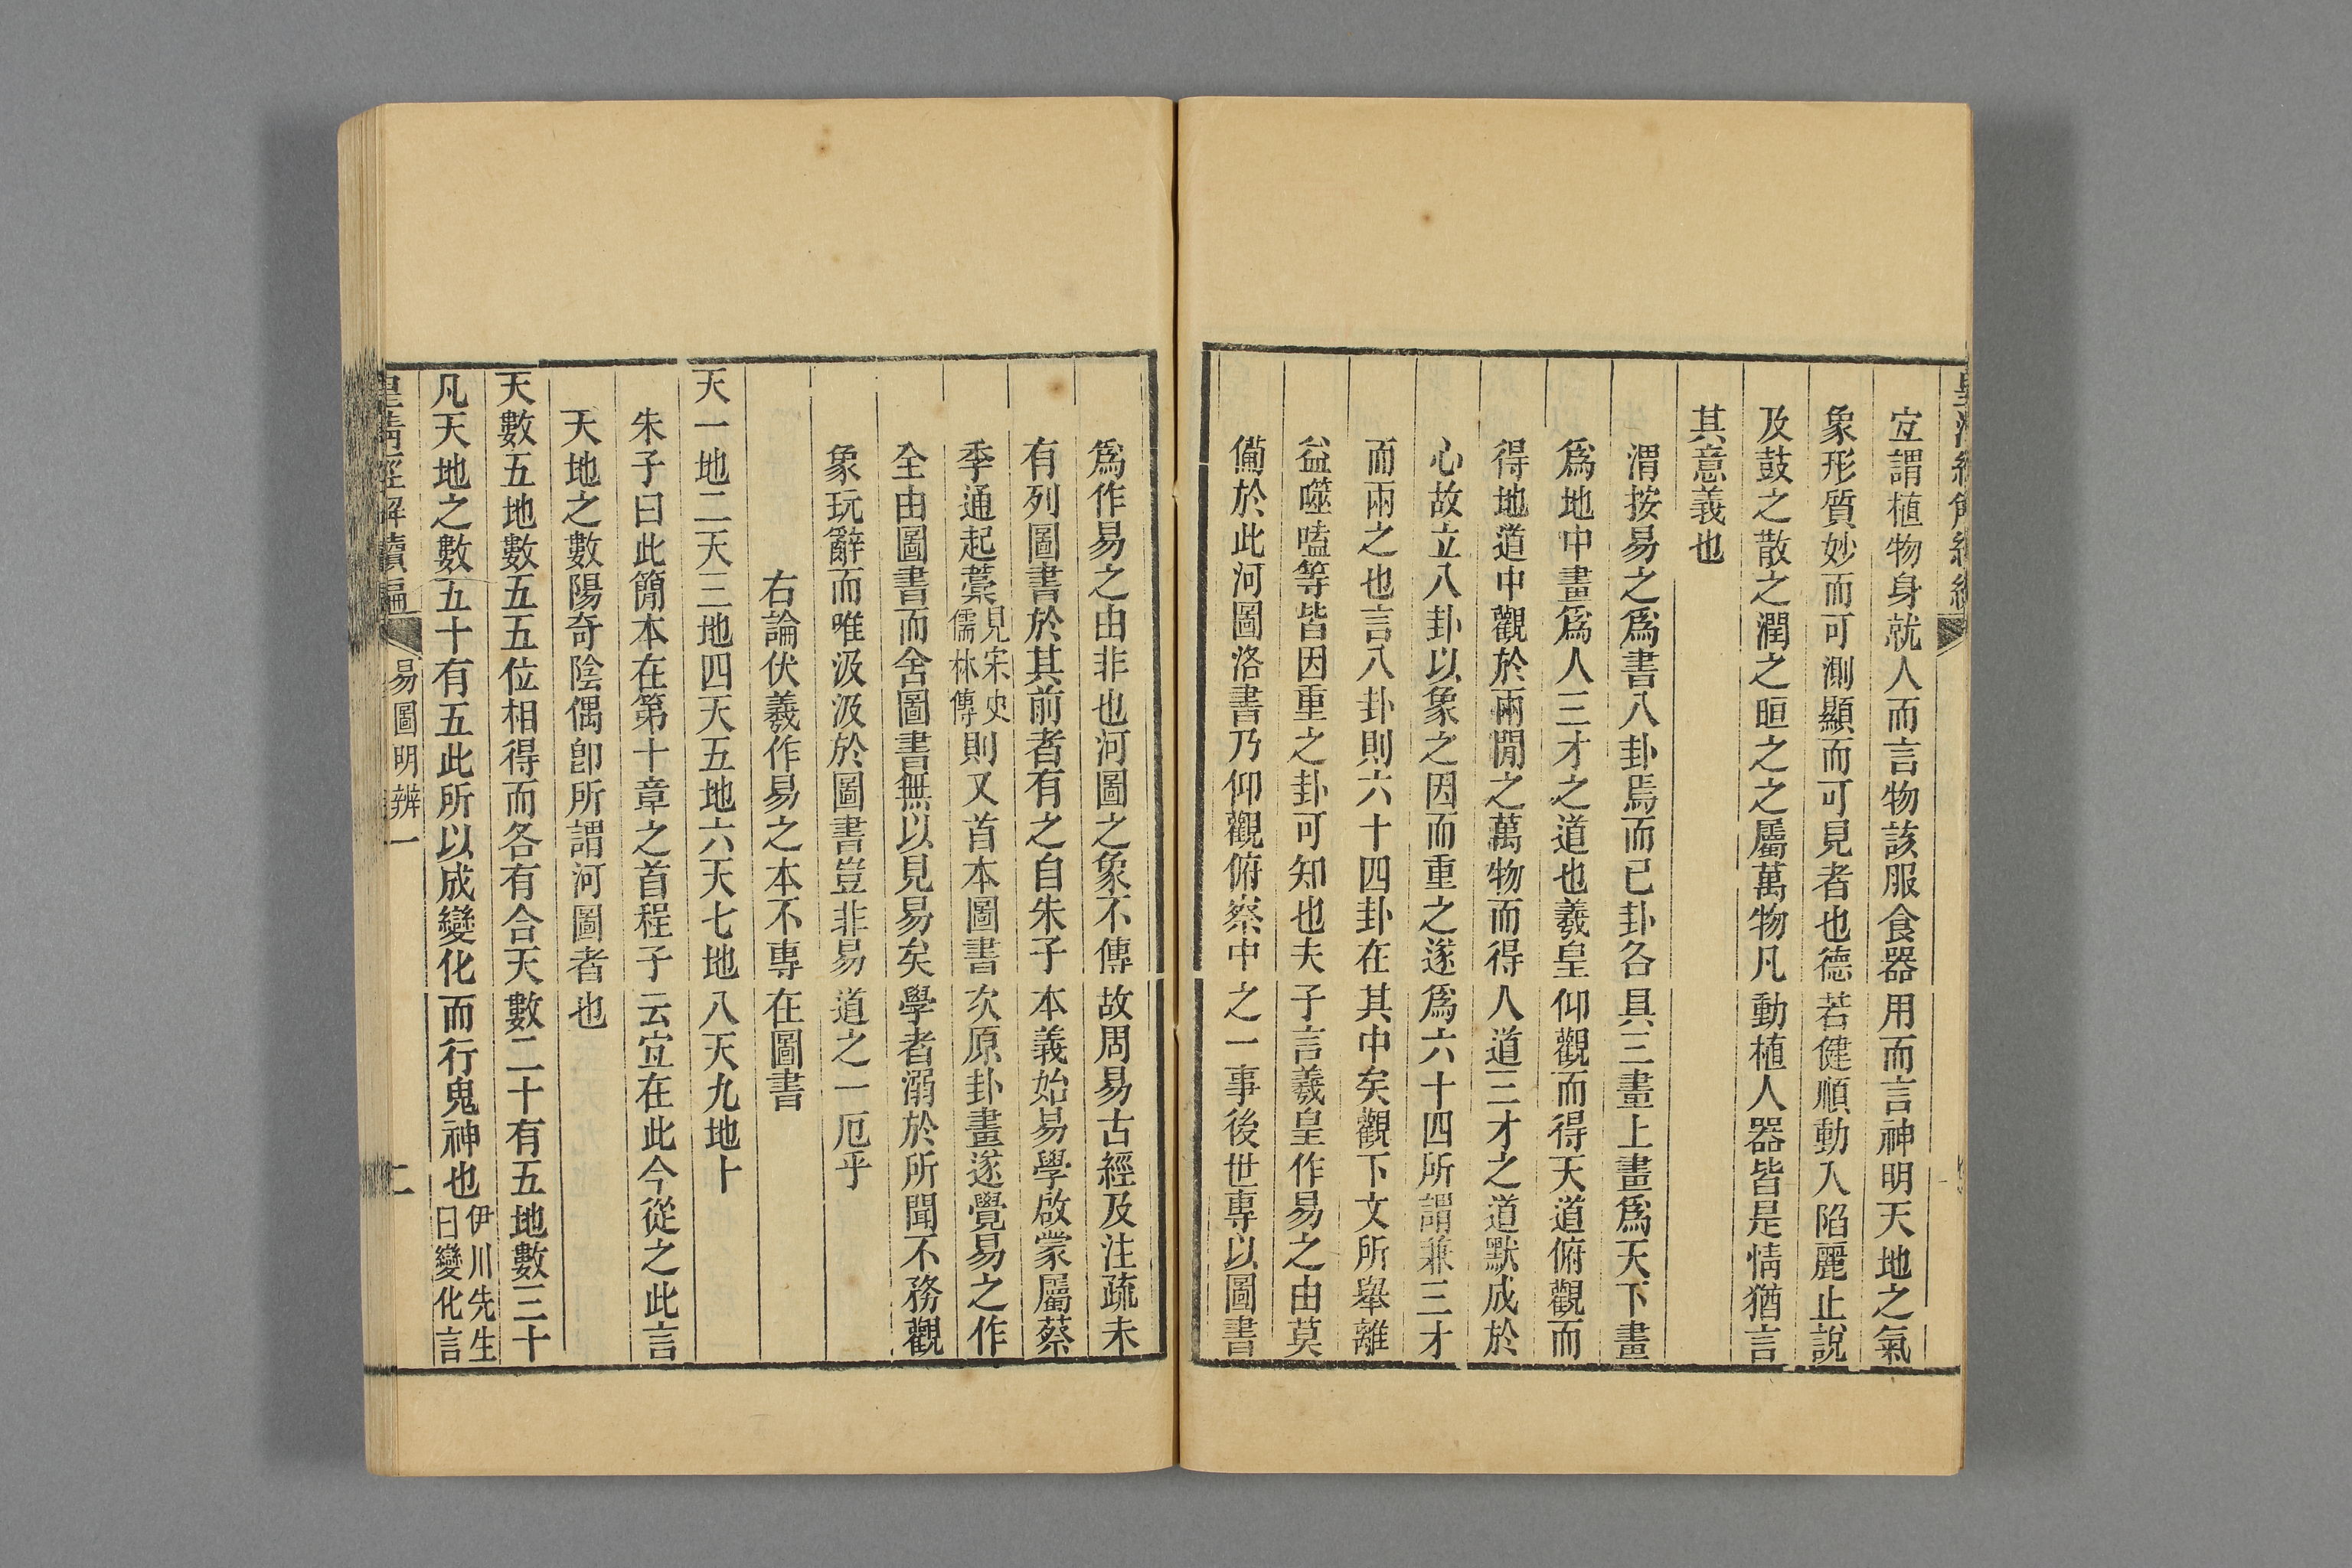 宐謂植物身就人而言物該服食器用而言神明天地之氣
象形質妙而可測顯而可見者也德若健順動入陷麗止說
及鼓之散之潤之晅之之屬萬物凡動植人器皆是情猶言
其意義也
渭按易之爲書八卦焉而已卦各具三畫上畫爲天下畫
爲地中畫爲人三才之道也羲皇仰觀而得天道俯觀而
得地道中觀於兩閒之萬物而得人道三才之道默成於
心故立八卦以象之因而重之遂爲六十四所謂兼三才
而兩之也言八卦則六十四卦在其中矣觀下文所舉離
益噬嗑等皆因重之卦可知也夫子言羲皇作易之由莫
備於此河圖洛書乃仰觀俯察中之一事後世專以圖書
爲作易之由非也河圖之象不傳故周易古經及注疏未
有列圖書於其前者有之自朱子本義始易學啟蒙屬蔡
季通起藁見宋史儒林傳則又首本圖書次原卦畫遂覺易之作
全由圖書而舍圖書無以見易矣學者溺於所聞不務觀
象玩辭而唯汲汲於圖書豈非易道之一厄乎
右論伏羲作易之本不專在圖書
天一地二天三地四天五地六天七地八天九地十
朱子曰此簡本在第十章之首程子云宐在此今從之此言
天地之數陽奇陰偶卽所謂河圖者也
天數五地數五五位相得而各有合天數二十有五地數三十
凡天地之數五十有五此所以成變化而行鬼神也伊川先生曰變化言
皇清經解續編
易圖明辨一
二